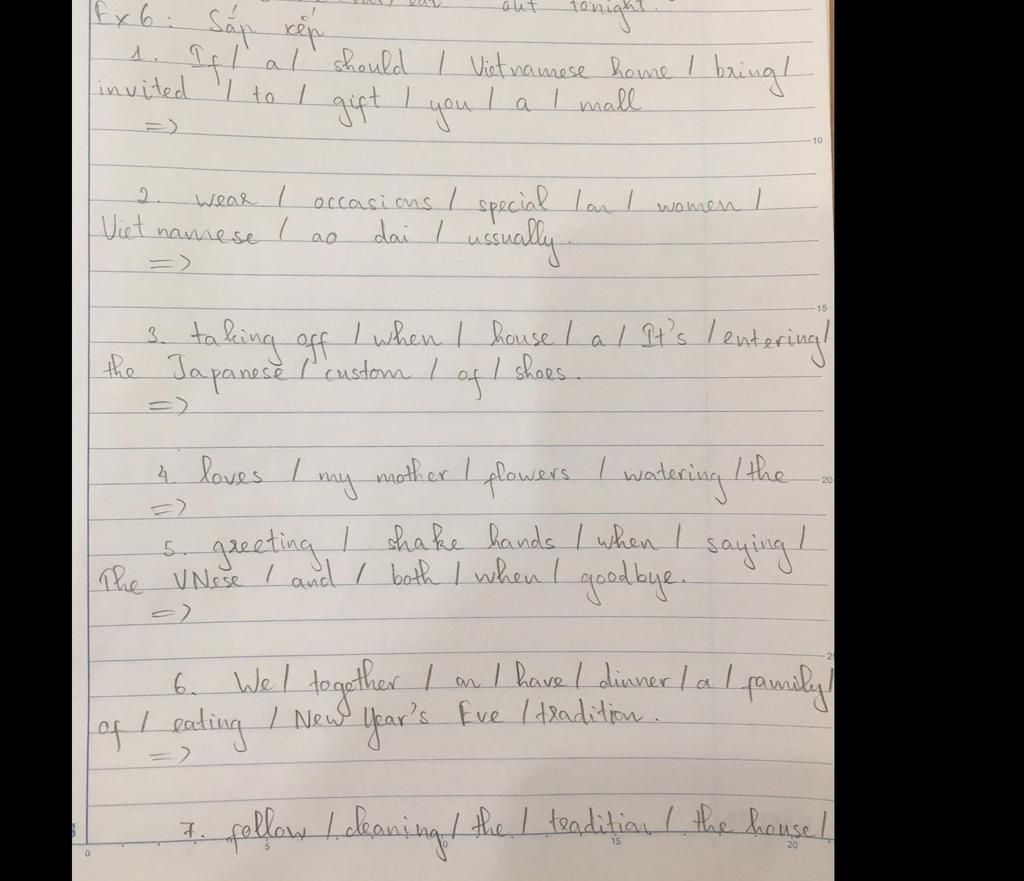 out tonight.
Ex6: Sắp xếp
1. If / a / should / Vietnamese home / bring /
invited / to / gift / you / a / mall
=>
10
2. wear / occasions / special / on / women /
Vietnamese / ao dai / ussually.
=>
15
3. taking off / when / house / a / It's / entering /
the Japanese / custom / of / shoes.
=>
4. loves / my mother / flowers / watering / the
20
=>
5. greeting / shake hands / when / saying /
The VNese / and / both / when / goodbye.
=>
25
6. We / together / on / have / dinner / a / family /
of / eating / New Year's Eve / tradition.
=>
7. follow / cleaning / the / tradition / the house /
0 5 10 15 20